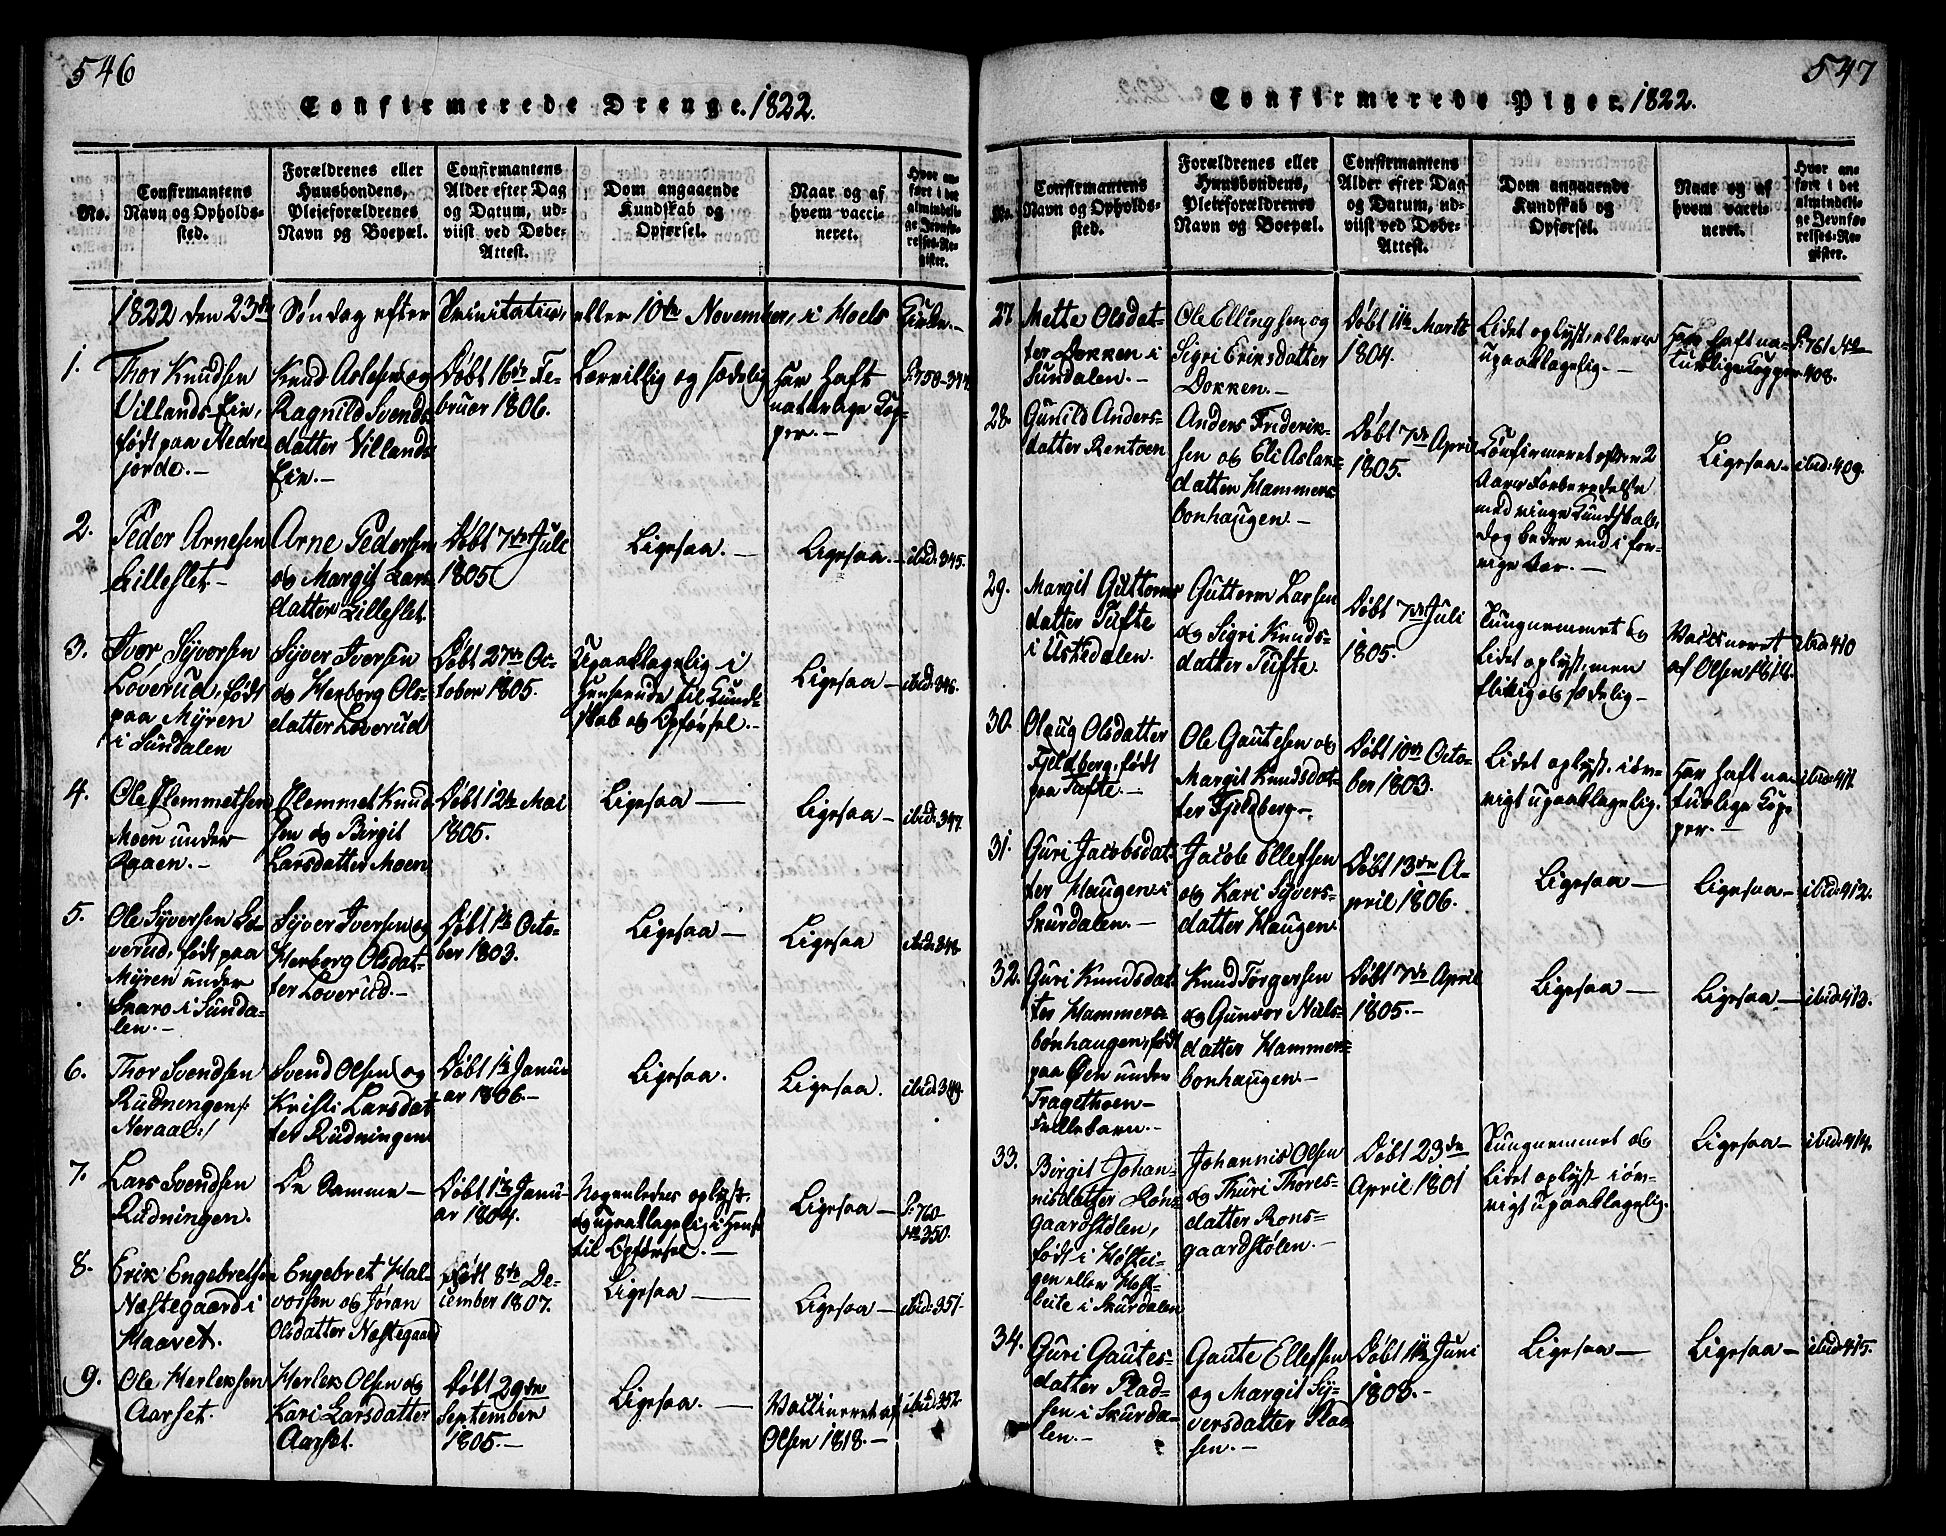 546
Confirmerede Drenge. 1822.
No.
Confirmantens Navn og Opholds-sted.
Forældrenes eller Huusbondens, Pleieforældrenes Navn og Boepæl.
Confirmantens Alder efter Dag og Datum, ud-viist ved Døbe-Attest.
Dom angaaende Kundskab og Opførsel.
Naar og af hvem vacci-neret.
Hvor an-ført i det almindeli-ge Jevnfø-relses-Re-gister.
1822 den 23de Søndag efter Trinitatis, eller 10de November, i Hoels Kirke.-
1.
Thor Knudsen
Villands Eie,
født paa Nedre
jorde.-
Knud Aslesen og
Ragnild Svends-
datter Villands
Eie.-
Døbt 16de Fe-
bruar 1806.
Lærvillig og sædelig
Har haft
naturlige Kop-
per.-
P: 750-344
2.
Peder Arnesen
Lilleslet-
Arne Pedersen
og Margit Lars-
datter Lilleslet.
Døbt 7de Juli
1805
Ligesaa.-
Ligesaa.-
ibid: 345.
3.
Iver Syversen
Løverud, født
paa Myren
i Sundalen
Syver Iversen
og Herborg Ols-
datter Løverud
Døbt 27de Oc-
tober 1805.
Upaaklagelig i
Henseende til Kund-
skab og Opførsel.-
Ligesaa-
ibid: 346.
4.
Ole Clemmetsen
Moen under
Aaen.-
Clemmet Knud-
sen og Birgit
Larsdatter Moen
Døbt 12te Mai
1805.
Ligesaa-
Ligesaa-
ibid: 347.
5.
Ole Syversen Lø-
verud, født paa
Myren under
Skaro i Sunda-
len.-
Syver Iversen og
Herborg Olsdat-
ter Løverud.-
Døbt 1te Octo-
ber 1803.
Ligesaa-
Ligesaa
ibid: 348
6.
Thor Svendsen
Rudningen/:
Neraal:/
Svend Olsen og
Kristi Larsdat-
ter Rudningen
Døbt 1te Janu-
ar 1806-
Ligesaa.
Ligesaa.
ibid: 349.
7.
Lars Svendsen
Rudningen.
De Samme-
Døbt 1te Janu-
ar 1804.
Nogenledes oplyst
og upaaklagelig i Hens:
til Opførsel.-
Ligesaa-
P: 760
No 350.
8.
Erik Engebretsen
Næstegaard i
Haavet.
Engebret Hal-
vorsen og Jøran
Olsdatter Næstegaard
Født 8de De-
cember 1807.
Ligesaa-
Ligesaa-
ibid: 351.
9.
Ole Herleksen
Aarset.
Herlek Olsen og
Kari Larsdatter
Aarset.
Døbt 29de
September
1805.-
Ligesaa.-
Vaccineret af
Olsen 1818.-
ibid: 352.
547
Confirmerede Piger. 1822.
No.
Confirmantens Navn og Opholds-sted.
Forældrenes eller Huusbondens, Pleieforældrenes Navn og Boepæl.
Confirmantens Alder efter Dag og Datum, ud-viist ved Døbe-Attest.
Dom angaaende Kundskab og Opførsel.
Naar og af hvem vacci-neret.
Hvor an-ført i det almindeli-ge Jevnfø-relses-Re-gister.
27.
Mette Olsdat-
ter Dokken i
Sundalen.-
Ole Ellingsen og
Sigri Eriksdatter
Dokken.-
Døbt 11te Marts
1804.
Lidet oplyst, ellers
upaaklagelig.-
Har haft na-
turlige Kopper
P: 761
408.
28.
Gunild Anders-
datter Rentoen
Anders Friderik-
sen og Eli Aslak-
datter Hammers-
bønhaugen.-
Døbt 7de April
1805.
Confirmeret efter 2
Aars Forberedelse
med ringe Kundskab,
dog bedre end i for-
rige Aar.-
Ligesaa.-
ibid: 409.
29.
Margit Guttorms
datter Tufte
i Ustedalen.
Guttorm Larsen
og Sigri Knuds-
datter Tufte.
Døbt 7de Juli
1805.
Tungnemmet og
lidet oplyst, men
flitig og sædelig-
Vaccineret
af Olsen 1818.
ibid 410
30.
Olaug Olsdatter
Fjeldberg, født
paa Tufte.-
Ole Gautesen og
Margit Knudsdat-
ter Fjeldberg-.
Døbt 10de Octo-
ber 1803.
Lidet oplyst, iøv-
rigt upaaklagelig.
Har haft na-
turlige Kop-
per.-
ibid: 411.
31.
Guri Jacobsdat-
ter Haugen i
Skurdalen.-
Jacob Ellefsen
og Kari Syvers-
datter Haugen
Døbt 13de A-
pril 1806.
Ligesaa-
Ligesaa-
ibid: 412.
32.
Guri Knudsdat-
ter Hammers-
bønhaugen, født
paa Øen under
Tragethoen-
Fellebarn.-
Knud Torgersen
og Gunvor Niels-
datter Hammers-
bønhaugen.-
Døbt 7de April
1805.-
Ligesaa-
Ligesaa-
ibid: 413.
33.
Birgit Johan-
nisdatter Røns-
gaardstølen,
født i Høftei-
gen eller Høft-
beite i Skurdalen
Johannis Olsen
og Thuri Thores-
datter Røns-
gaardstølen.-
Døbt 23de
April 1801
Tungnemmet og
lidet oplyst iøv-
rigt upaaklagelig.
Ligesaa-
ibid: 414.
34.
Guri Gautes-
datter Plad-
sen i Skurda-
len.-
Gaute Ellefsen
og Margit Sy-
versdatter Plad-
sen.-
Døbt 11te Juni
1808.-
Ligesaa-
Ligesaa-
ibid 415.